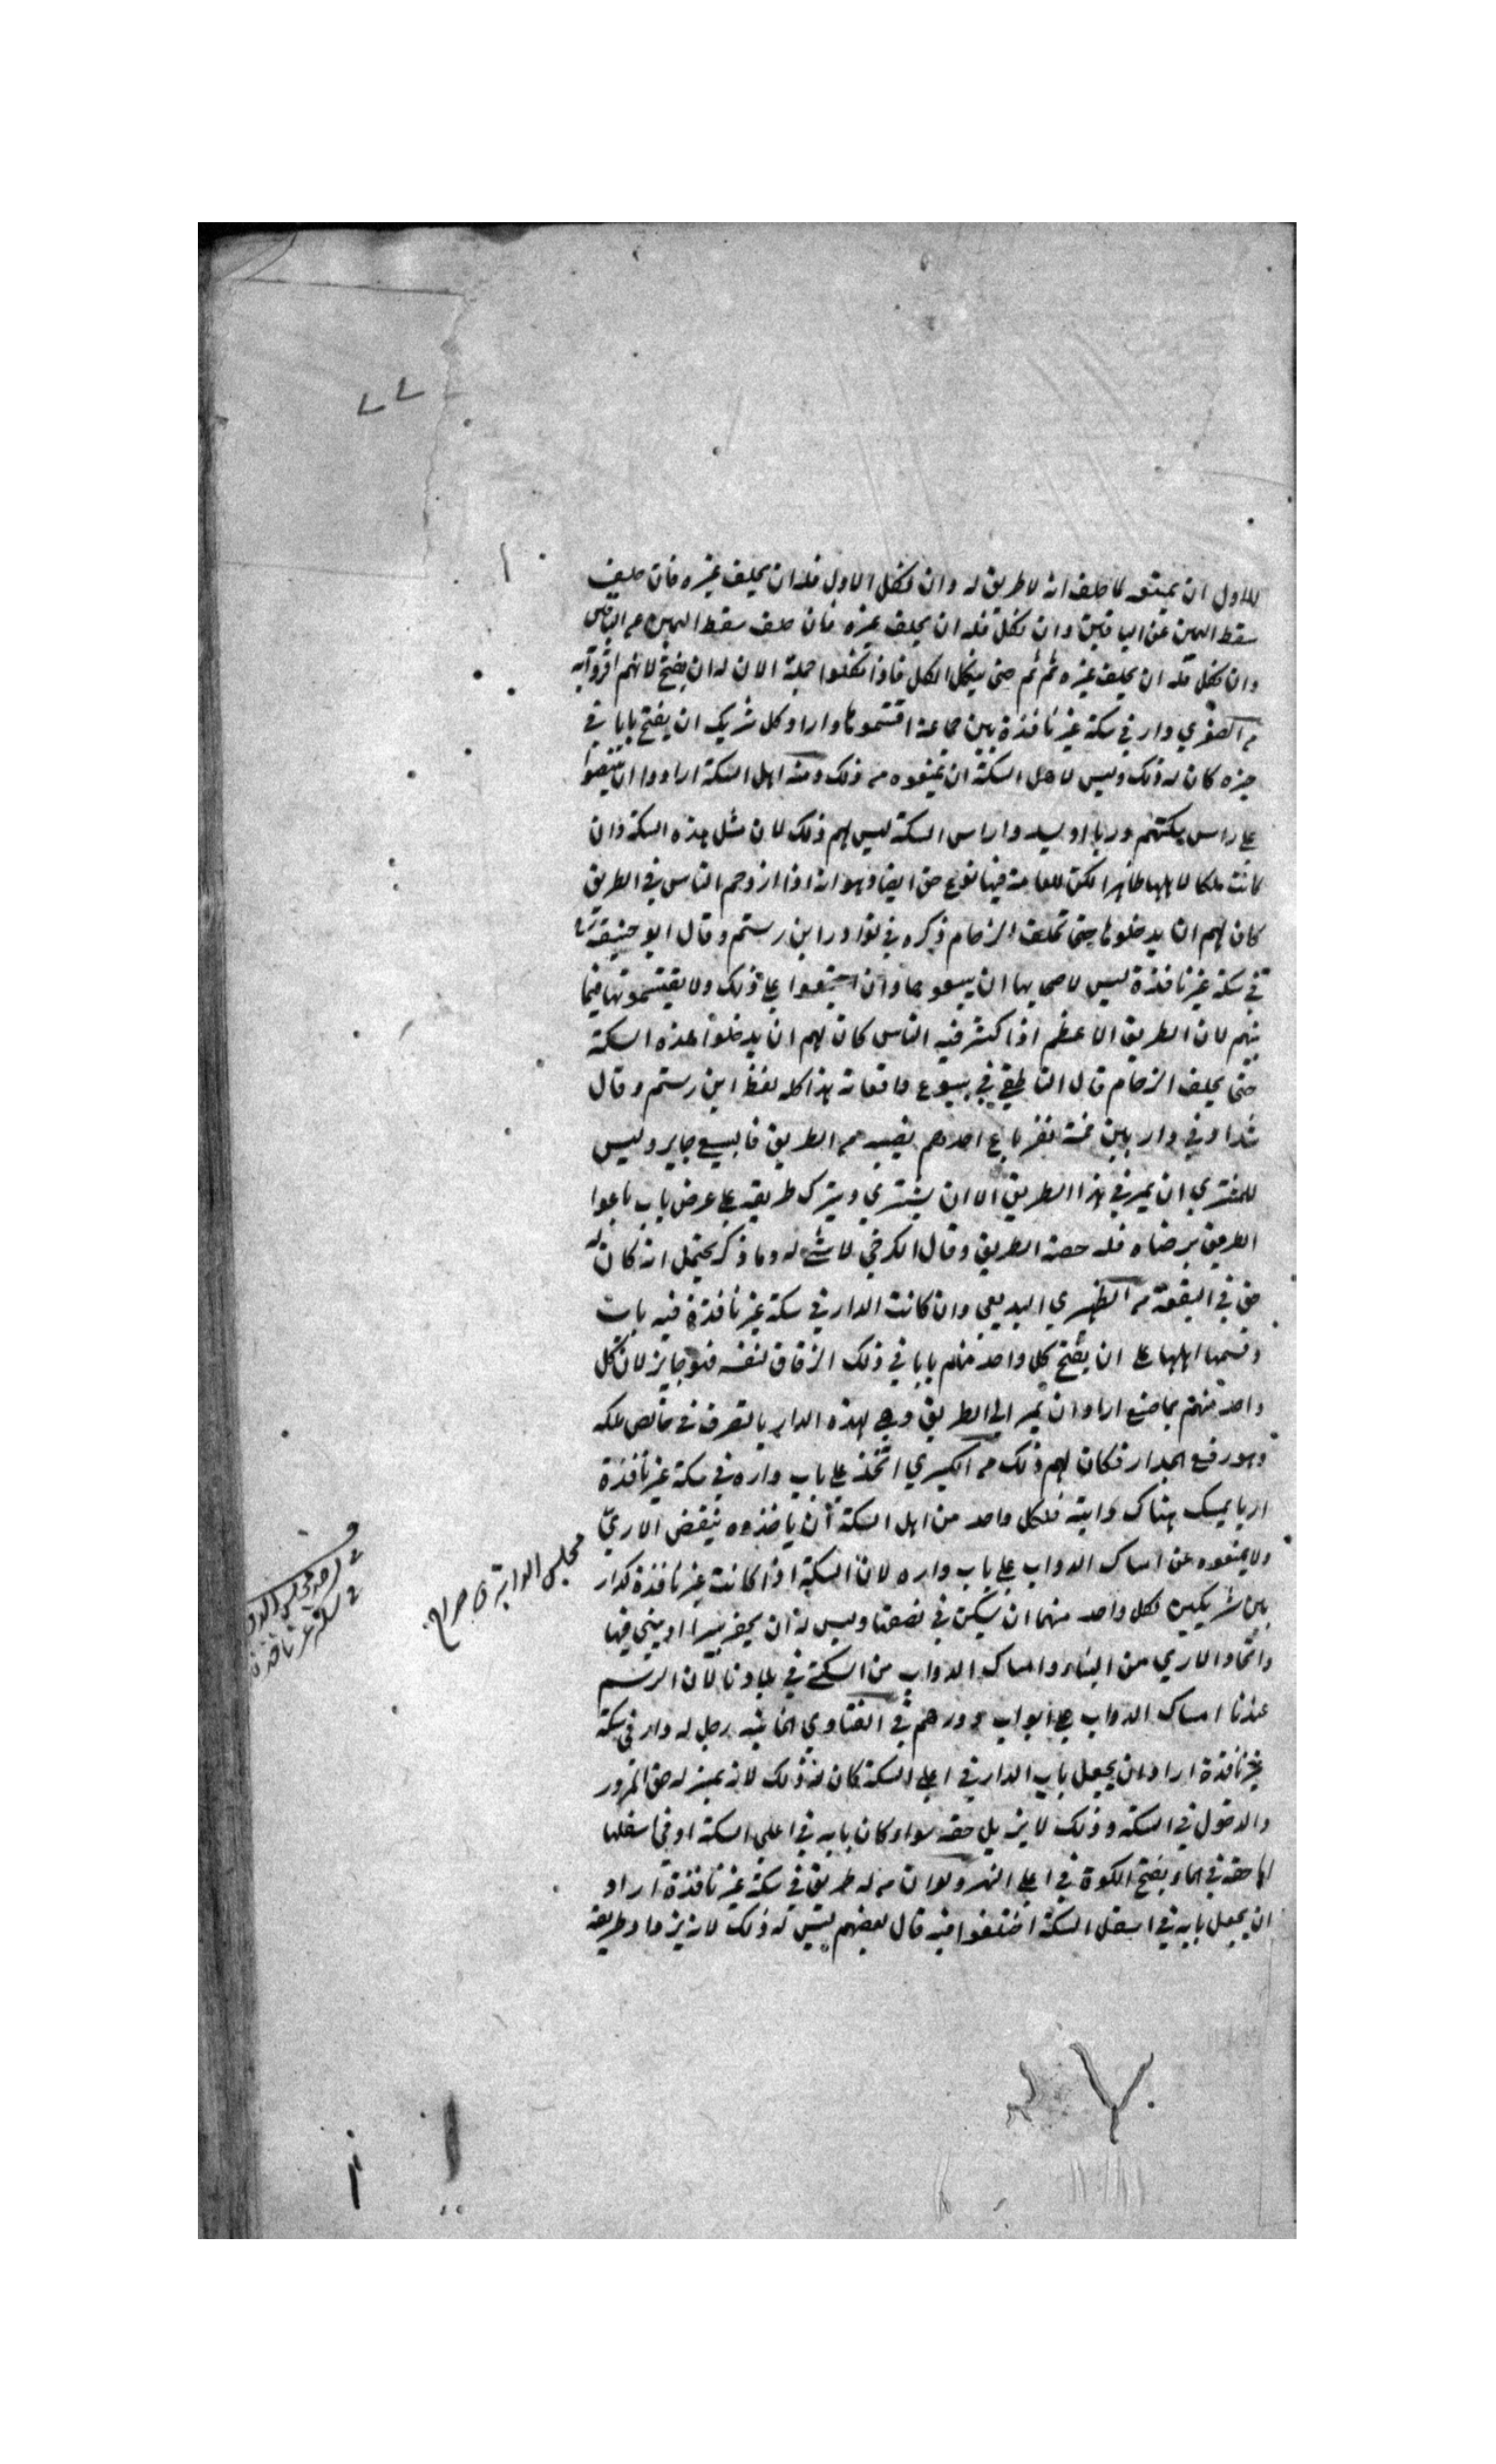 للاول ان يمنعه لما حلف انه لا طريق له وان نكل الاول فله ان يحلف غيره فان حلف
سقط اليمين عن الباقين وان نكل فله ان يحلف غيره فان حلف سقط اليمين عن الباقين
وان نكل فله ان يحلف غيره ثم ثم حتى ينكل الكل فاذا نكلوا جملة الان له ان يفتح لانهم اقروا به
دار في سكة غير نافذة بين جماعة اقتسموها واراد كل شريك ان يفتح بابا في
حيزه كان له ذلك وليس لاهل السكة ان يمنعوه من ذلك ومنه اهل السكة ارادوا ان ينصبوا
على راس سكتهم دربا او يسدوا راس السكة ليس لهم ذلك لان مثل هذه السكة وان
كانت ملكا لاهلها ظاهرا لكن للعامة فيها نوع حق ايضا وهو انه اذا ازدحم الناس في الطريق
كان لهم ان يدخلوها حتى تخف الزحام ذكره في نوادر ابن رستم وقال ابو حنيفة
في سكة غير نافذة ليس لاصحابها ان يبيعوها وان اجتمعوا على ذلك ولا يقتسمونها فيما
بينهم لان الطريق الاعظم اذا كثر فيه الناس كان لهم ان يدخلوا هذه السكة
حتى يخف الزحام قال الناطفي في بيوع واقعاته هذا كله لفظ ابن رستم وقال
شداد في دار بين خمسة نفر باع احدهم نصيبه من الطريق فالبيع جايز وليس
للمشتري ان يمر في هذا الطريق الا ان يشتري ويترك طريقه على عرض باب باعوا
الطريق برضاه فله حصة الطريق وقال الكرخي لا شئ له وما ذكر يحتمل انه كان له
حق في البقعة من الظهيري البديعي وان كانت الدار في سكة غير نافذة فيه باب
وقسمها اهلها على ان يفتح كل واحد منهم بابا في ذلك الزقاق لنفسه فهو جايز لان كل
واحد منهم بما صنع اراد ان يمر الى الطريق وهي لهذه الدار بالتصرف في خالص ملكه
وهو رفع الجدار فكان لهم ذلك من الكبيري اتخذ على باب داره في سكة غير نافذة
اريا يمسك هناك دابته فلكل واحد من اهل السكة ان ياخذوه بنقض الاري
ولا يمنعوه عن امساك الدواب على باب داره لان السكة اذا كانت غير نافذة كدار
بين شريكين لكل واحد منهما ان يسكن في نصفها وليس له ان يحفر بيرا او يبني فيها
واتخاذ الاري من البناء وامساك الدواب من السكنى في بلادنا لان الرسم
عندنا امساك الدواب على ابواب دورهم في الفتاوي الخانية رجل له دار في سكة
غير نافذة اراد ان يجعل باب الدار في اعلى السكة كان له ذلك لان له حق المرور
والدخول في السكة وذلك لا يزيل حقه سواء كان بابه في اعلى السكة او في اسفلها
حقه في الماء بفتح الكوة في اعلى النهر ولو ان من له طريق في سكة غير نافذة اراد
ان يجعل بابه في اسفل السكة اختلفوا فيه قال بعضهم ليس له ذلك لانه يزداد طريقه
في سكة غير نافذة